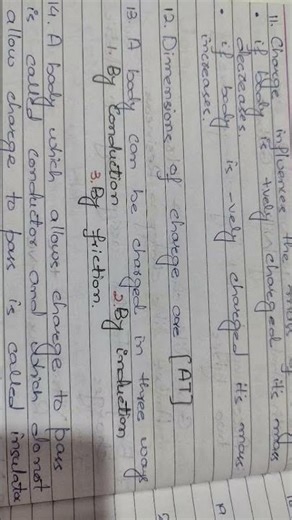 11. Charge influences the mass of
• if body is +vely charged its mass
decreases.
• if body is -vely charged its mass
increases.
12. Dimensions of charge are [AT]
13. A body can be charged in three ways
1. By Conduction 2. By induction
3. By friction.
14. A body which allows charge to pass
is called conductor and which donot
allow charge to pass is called insulator